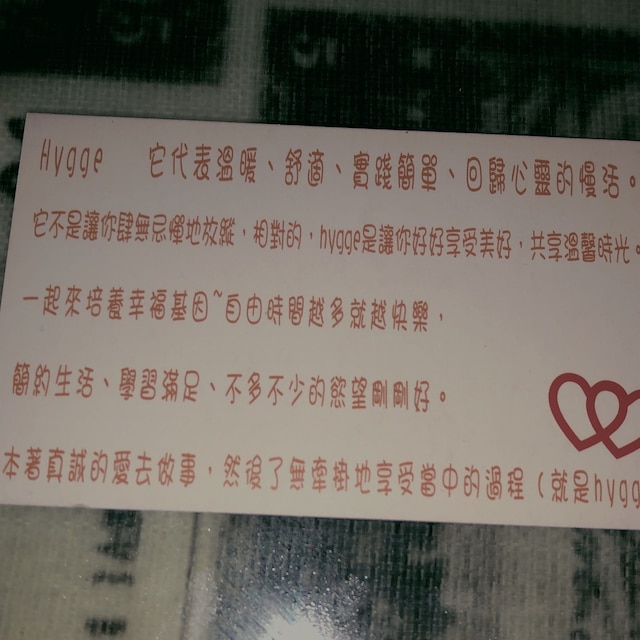 Hygge 它代表溫暖、舒適、實踐簡單、回歸心靈的慢活。
它不是讓你肆無忌憚地放縱，相對的，hygge是讓你好好享受美好，共享溫馨時光。
一起來培養幸福基因~自由時間越多就越快樂，
簡約生活、學習滿足、不多不少的慾望剛剛好。
本著真誠的愛去做事，然後了無牽掛地享受當中的過程（就是hygg